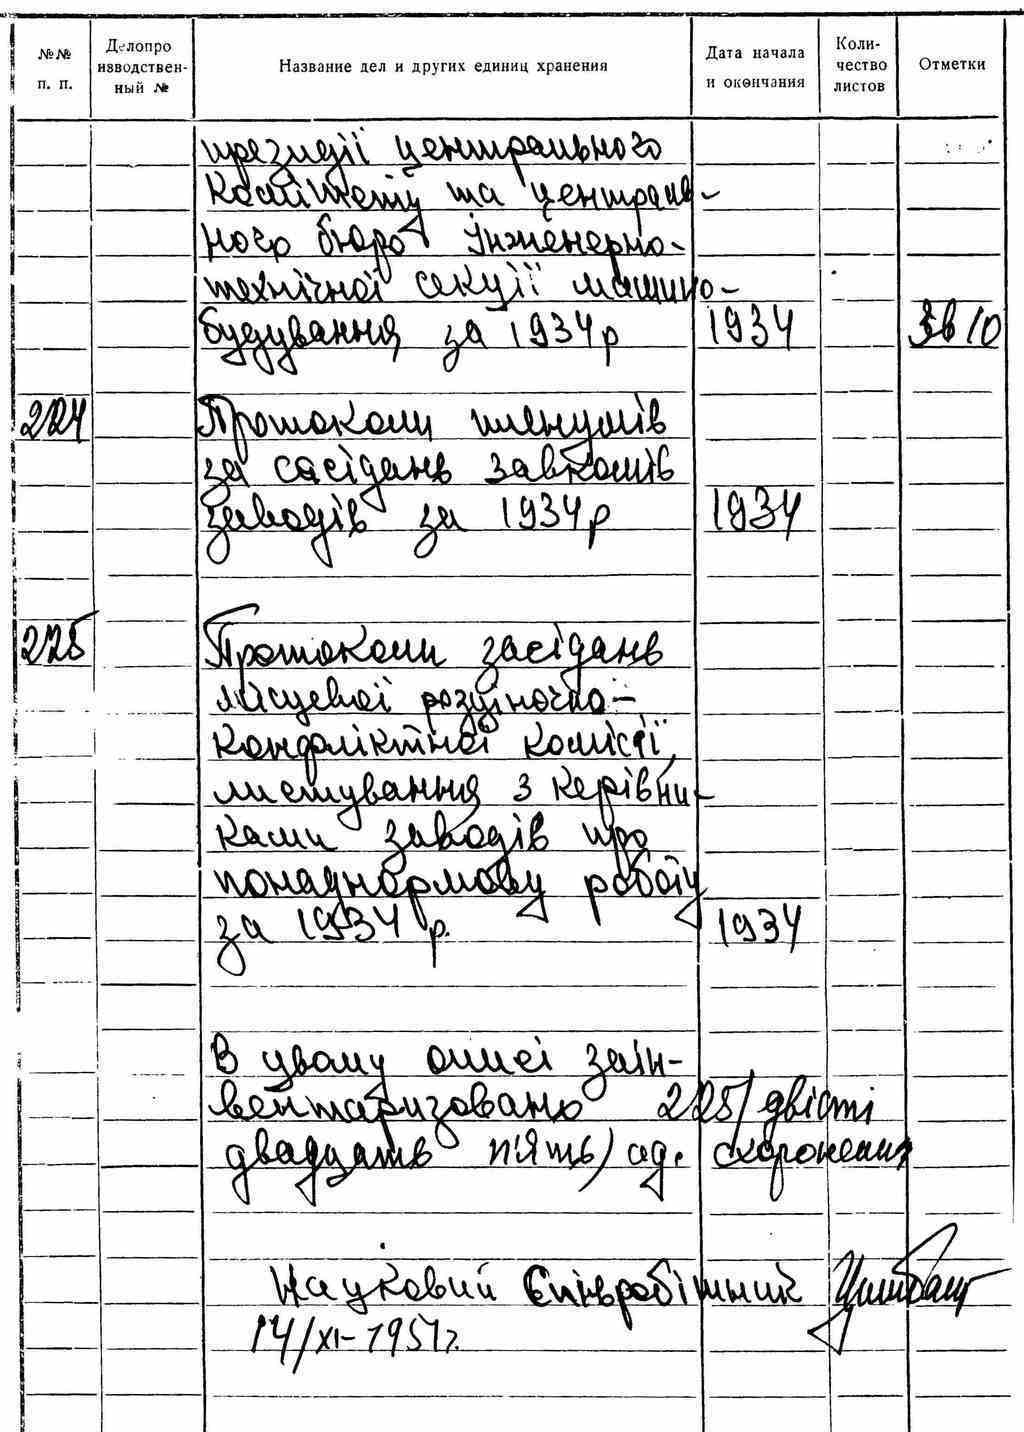 №№ п. п.
Делопроизводственный №
Название дел и других единиц хранения
Дата начала и окончания
Количество листов
Отметки
президії центрального
комітету та централь-
ного бюро інженерно-
технічної секції машино-
будування за 1934 р 1934
224 Протоколи пленумів
за сасідань завкомів
заводів за 1934 р 1934
225 Протоколи засідань
місцевої розціночно-
конфліктної комісії,
листування з керівни-
ками заводів про
понаднормову роботу
за 1934 р. 1934
В цьому описі заін-
вентаризовано 225/двісті
двадцять п'ять) од. схоронення
Науковий співробітник
14/XI-1951г.